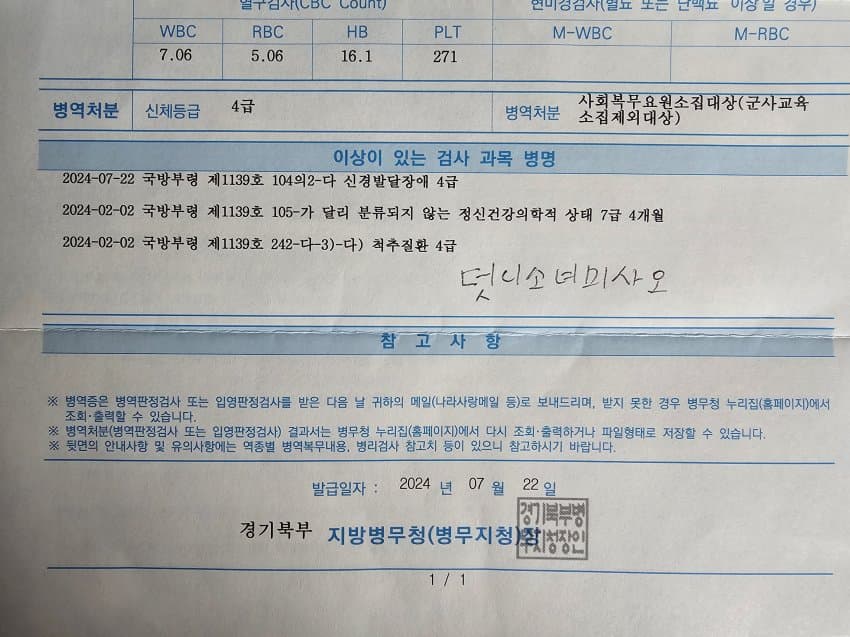 혈구검사(CBC Count)
현미경검사(혈뇨 또는 단백뇨 이상일 경우)
WBC RBC HB PLT M-WBC M-RBC
7.06 5.06 16.1 271
병역처분 신체등급 4급 병역처분 사회복무요원소집대상(군사교육
소집제외대상)
이상이 있는 검사 과목 병명
2024-07-22 국방부령 제1139호 104의2-다 신경발달장애 4급
2024-02-02 국방부령 제1139호 105-가 달리 분류되지 않는 정신건강의학적 상태 7급 4개월
2024-02-02 국방부령 제1139호 242-다-3)-다) 척추질환 4급
덧니소녀미사오
참 고 사 항
※ 병역증은 병역판정검사 또는 입영판정검사를 받은 다음 날 귀하의 메일(나라사랑메일 등)로 보내드리며, 받지 못한 경우 병무청 누리집(홈페이지)에서
조회·출력할 수 있습니다.
※ 병역처분(병역판정검사 또는 입영판정검사) 결과서는 병무청 누리집(홈페이지)에서 다시 조회·출력하거나 파일형태로 저장할 수 있습니다.
※ 뒷면의 안내사항 및 유의사항에는 역종별 병역복무내용, 병리검사 참고치 등이 있으니 참고하시기 바랍니다.
발급일자 : 2024 년 07 월 22 일
경기북부 지방병무청(병무지청)장
경기북부병
무지청장인
1 / 1